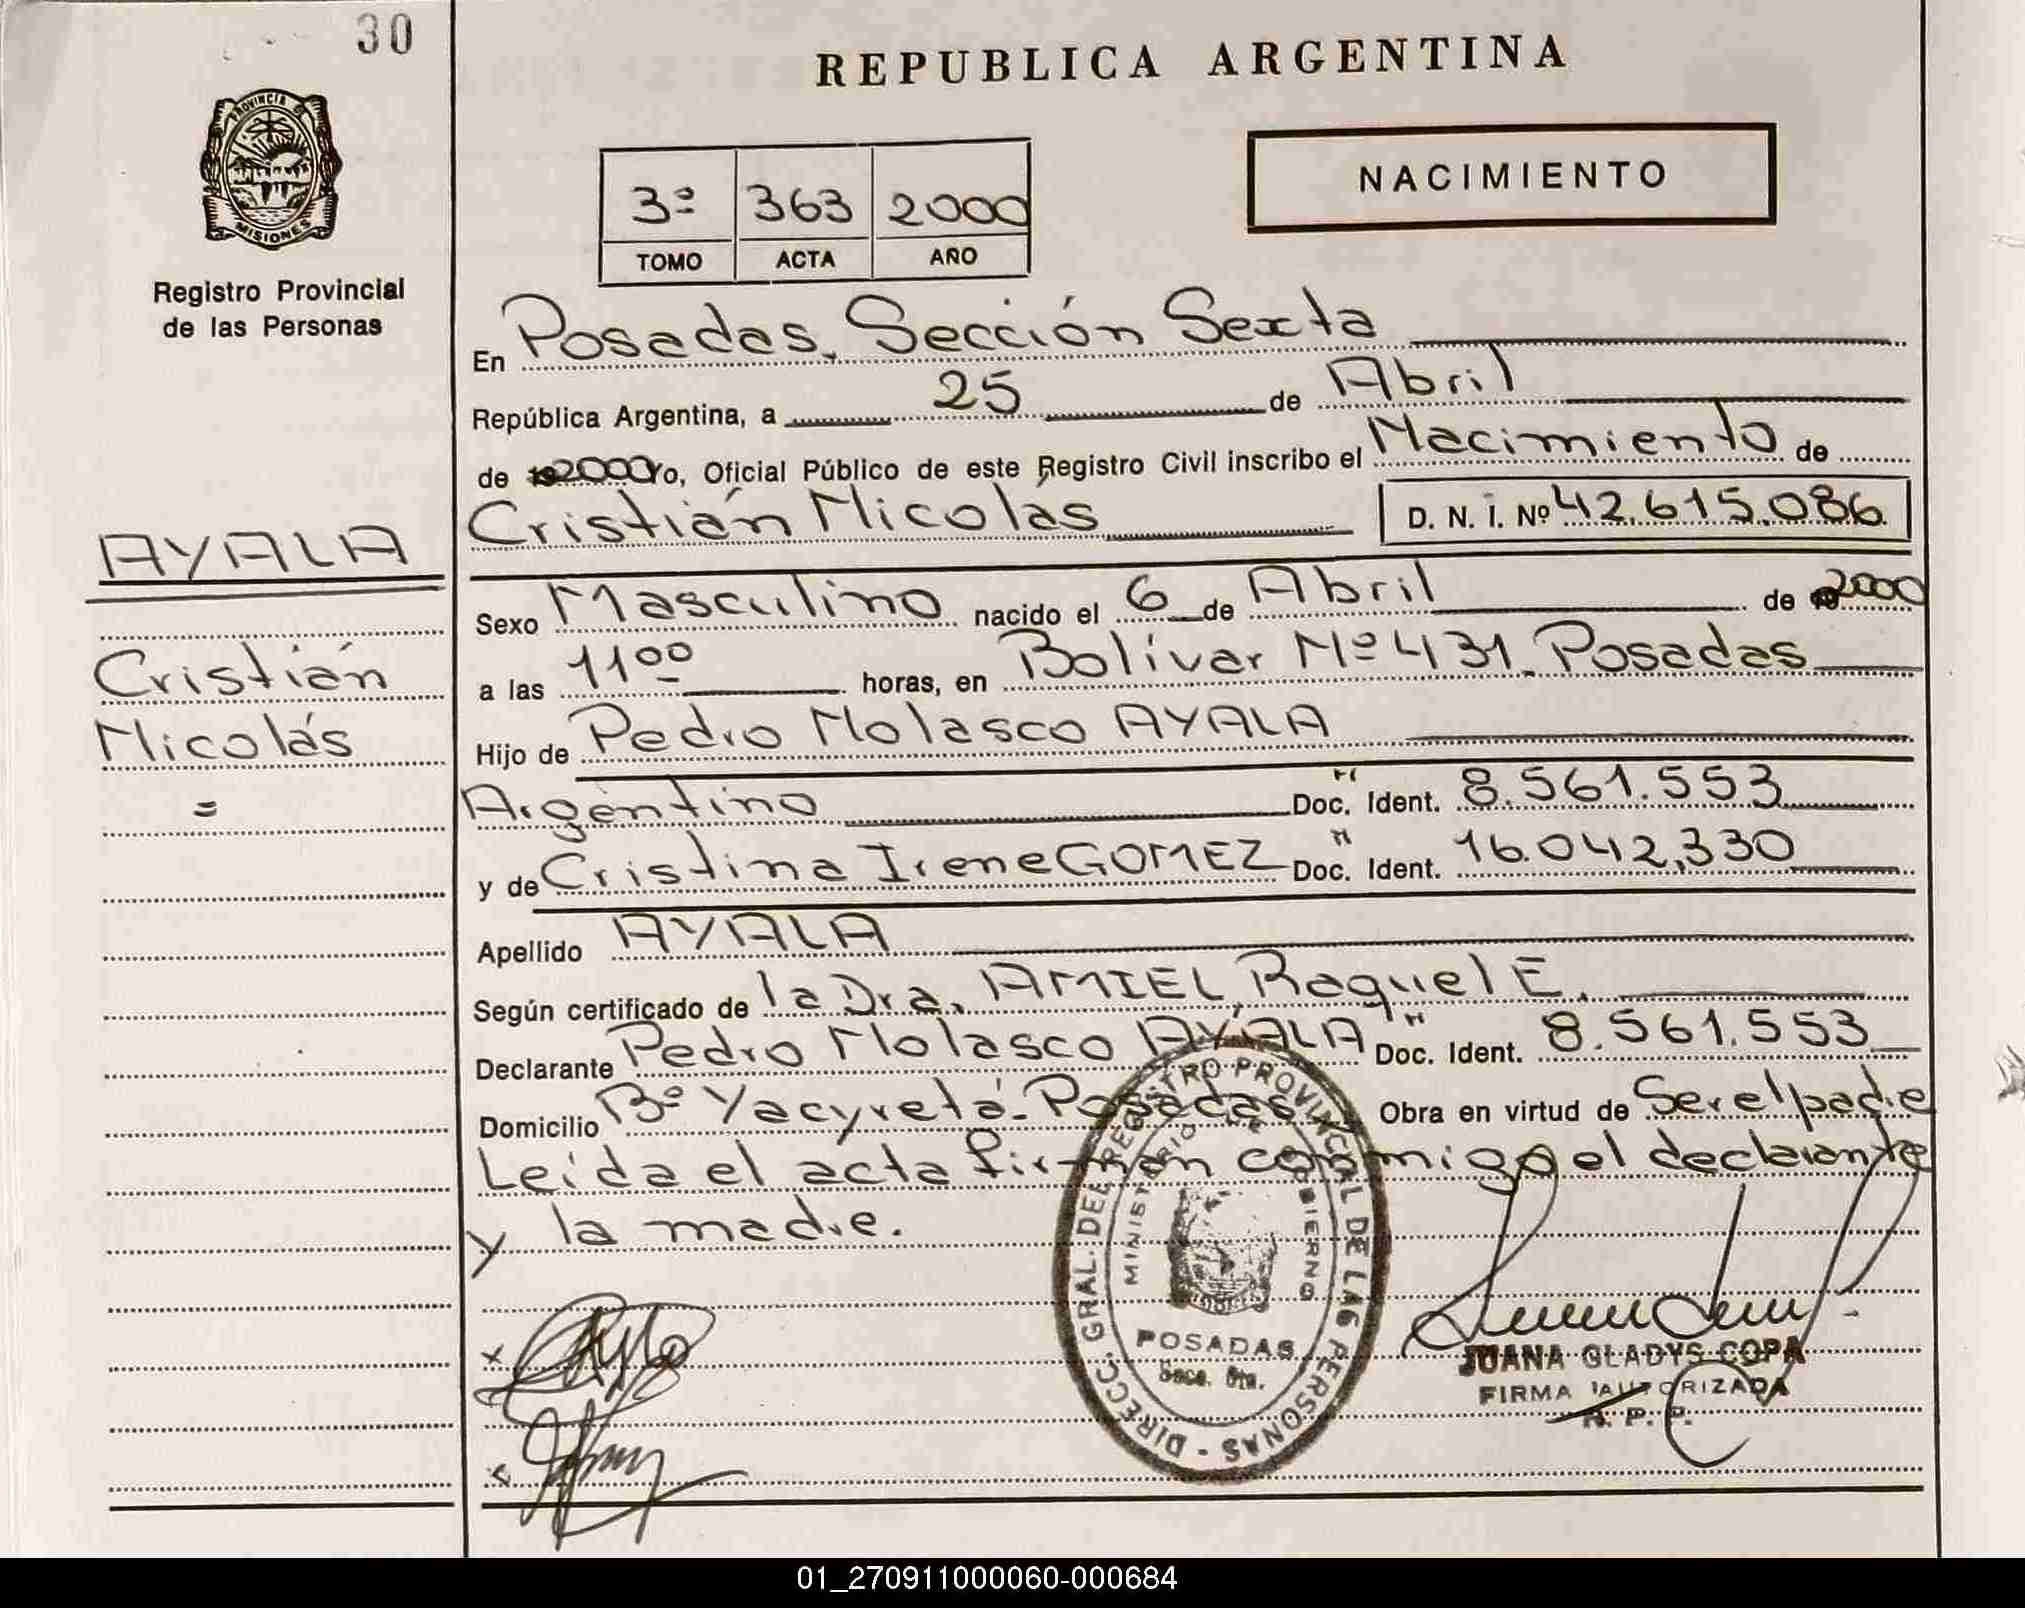 30
REPUBLICA ARGENTINA
PROVINCIA DE
MISIONES
Registro Provincial
de las Personas
NACIMIENTO
3º 363 2000
TOMO ACTA AÑO
En Posadas, Sección Sexta
República Argentina, a 25 de Abril
de 2000 Yo, Oficial Público de este Registro Civil inscribo el Nacimiento de
Cristián Nicolás D. N. I. Nº 42.615.086
AYALA
Cristián
Nicolás
=
Sexo Masculino nacido el 6 de Abril de 2000
a las 11⁰⁰ horas, en Bolívar Nº 431. Posadas
Hijo de Pedro Nolasco AYALA
Argentino Doc. Ident. 8.561.553
y de Cristina Irene GOMEZ Doc. Ident. 16.042,330
Apellido AYALA
Según certificado de la Dra. AMIEL, Raquel E.
Declarante Pedro Nolasco AYALA Doc. Ident. 8.561.553
Domicilio Bº Yacyretá - Posadas Obra en virtud de Ser el padre
Leída el acta firman conmigo el declarante
y la madre.
DIRECC. GRAL. DEL REGISTRO PROVINCIAL DE LAS PERSONAS -
MINISTERIO DE GOBIERNO
POSADAS
Secc. 6ta.
JUANA GLADYS COPA
FIRMA AUTORIZADA
R. P. P.
01_270911000060-000684